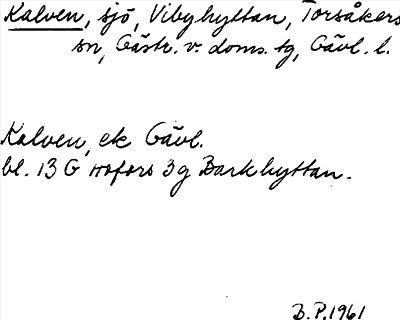 Kalven, sjö, Vibyhyttan, Torsåkers
sn, Gästr. v. doms. tg, Gävl. l.
Kalven, ek Gävl.
bl. 13 G Hofors 3g Barkhyttan.
B.P. 1961